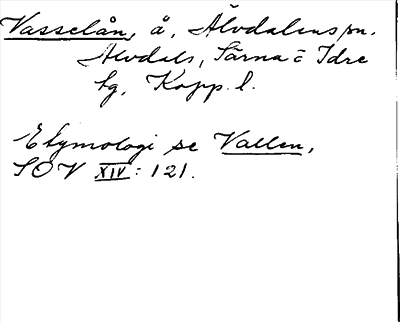 Vasselån, å, Älvdalens sn.
Älvdals, Särna o Idre
tg, Kopp. l.
Etymologi se Vallen,
SOV XIV: 121.